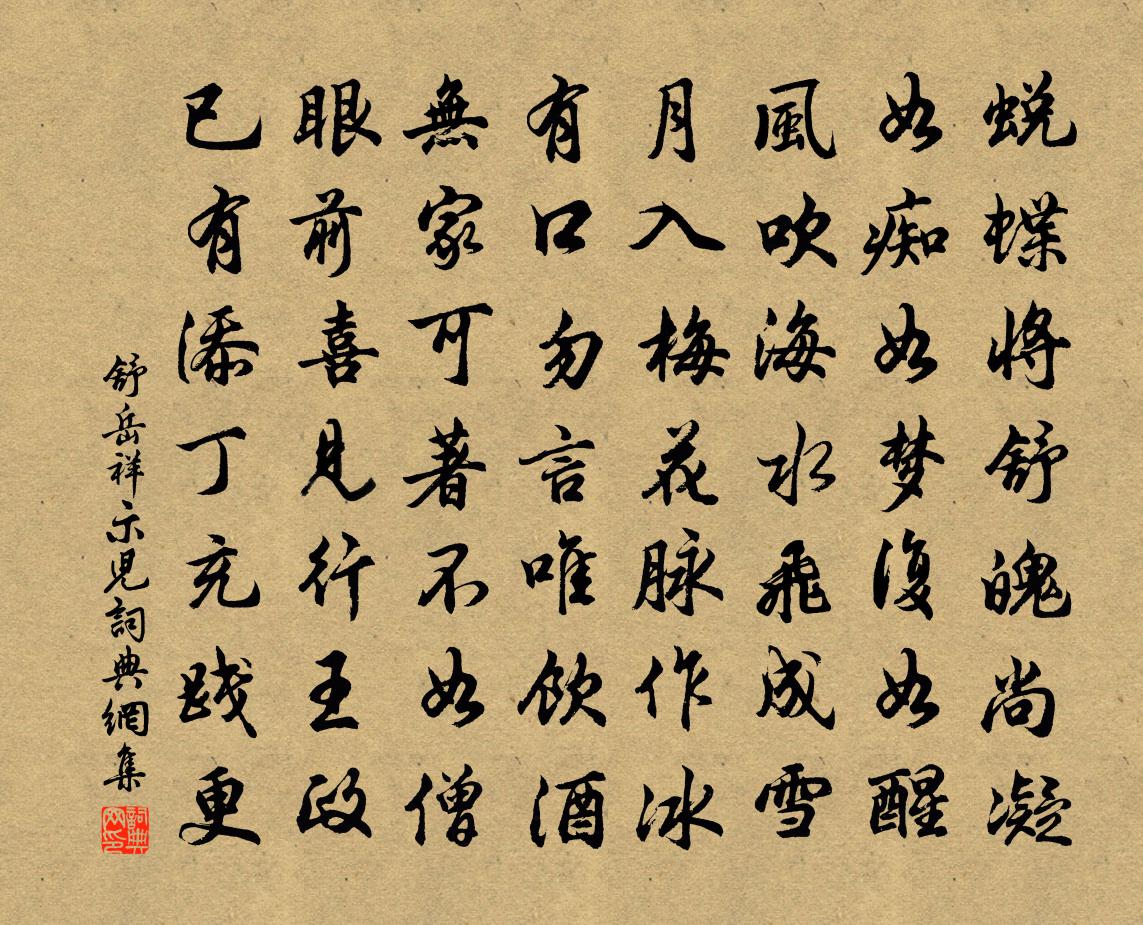 蜕蝶将舒魄尚凝
如痴如梦復如醒
風吹海水飛成雪
月入梅花脉作冰
有口勿言唯飲酒
無家可著不如僧
眼前喜見行王政
已有添丁充践更
舒岳祥示児詞典網集
詞典网印